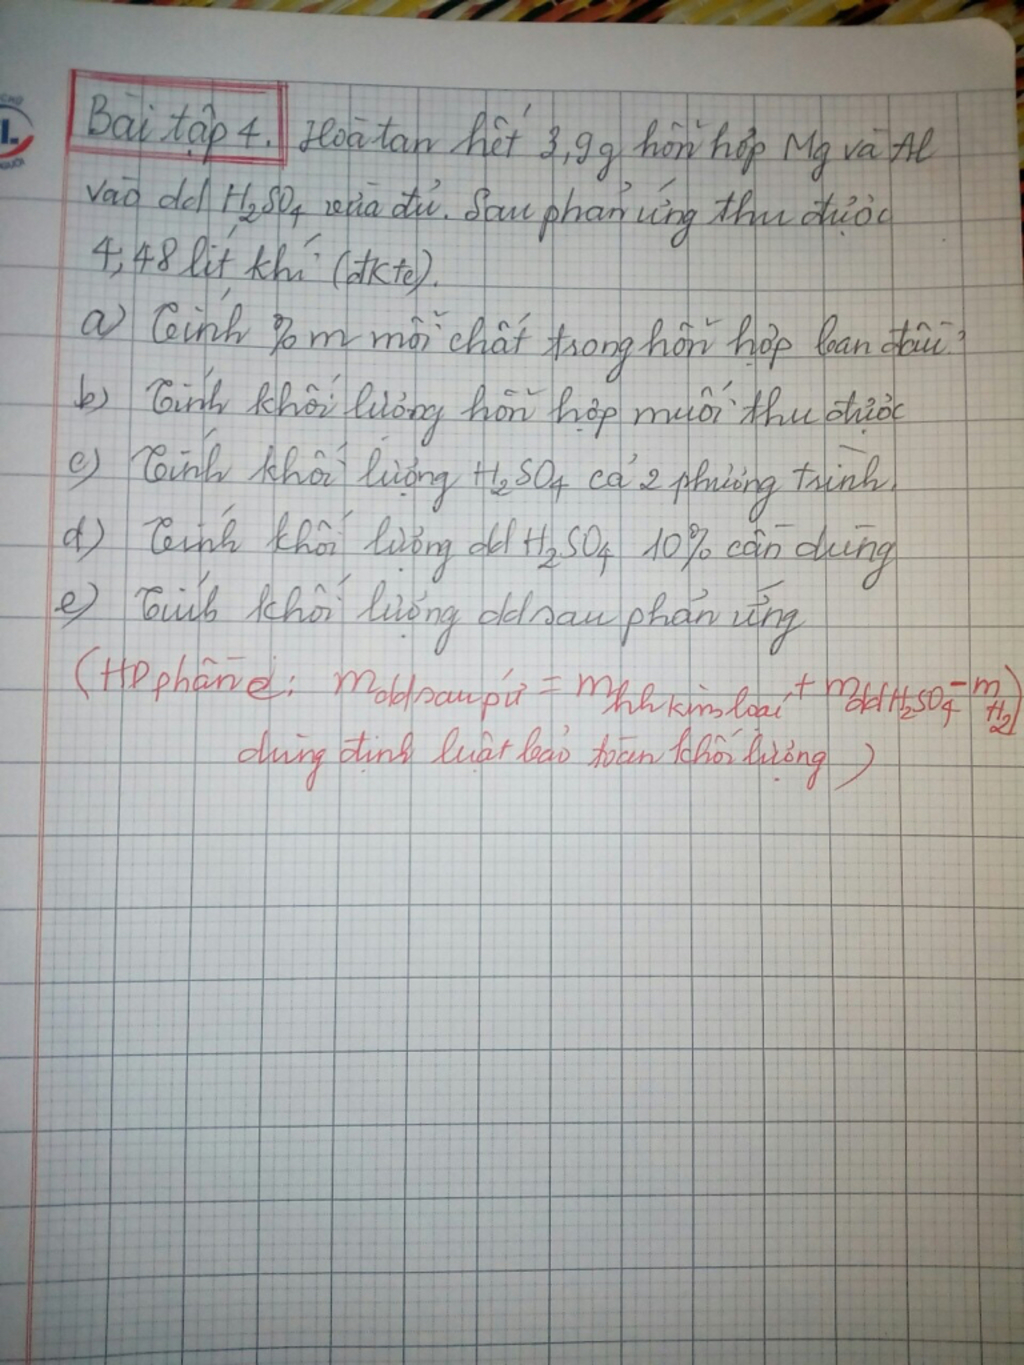 Bài tập 4. Hoà tan hết 3,9g hỗn hợp Mg và Al
vào dd H₂SO₄ vừa đủ. Sau phản ứng thu được
4,48 lít khí (đktc).
a) Tính %m mỗi chất trong hỗn hợp ban đầu?
b) Tính khối lượng hỗn hợp muối thu được
c) Tính khối lượng H₂SO₄ cả 2 phương trình.
d) Tính khối lượng dd H₂SO₄ 10% cần dùng
e) Tính khối lượng dd sau phản ứng
(HD phần e: mddsau pứ = mhh kim loại + mddH₂SO₄ - mH₂)
dùng định luật bảo toàn khối lượng)